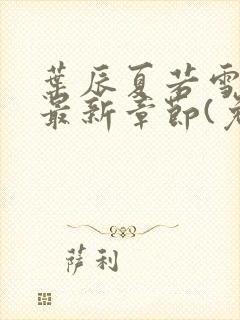 葉辰夏若雪
最新章節(
萨利